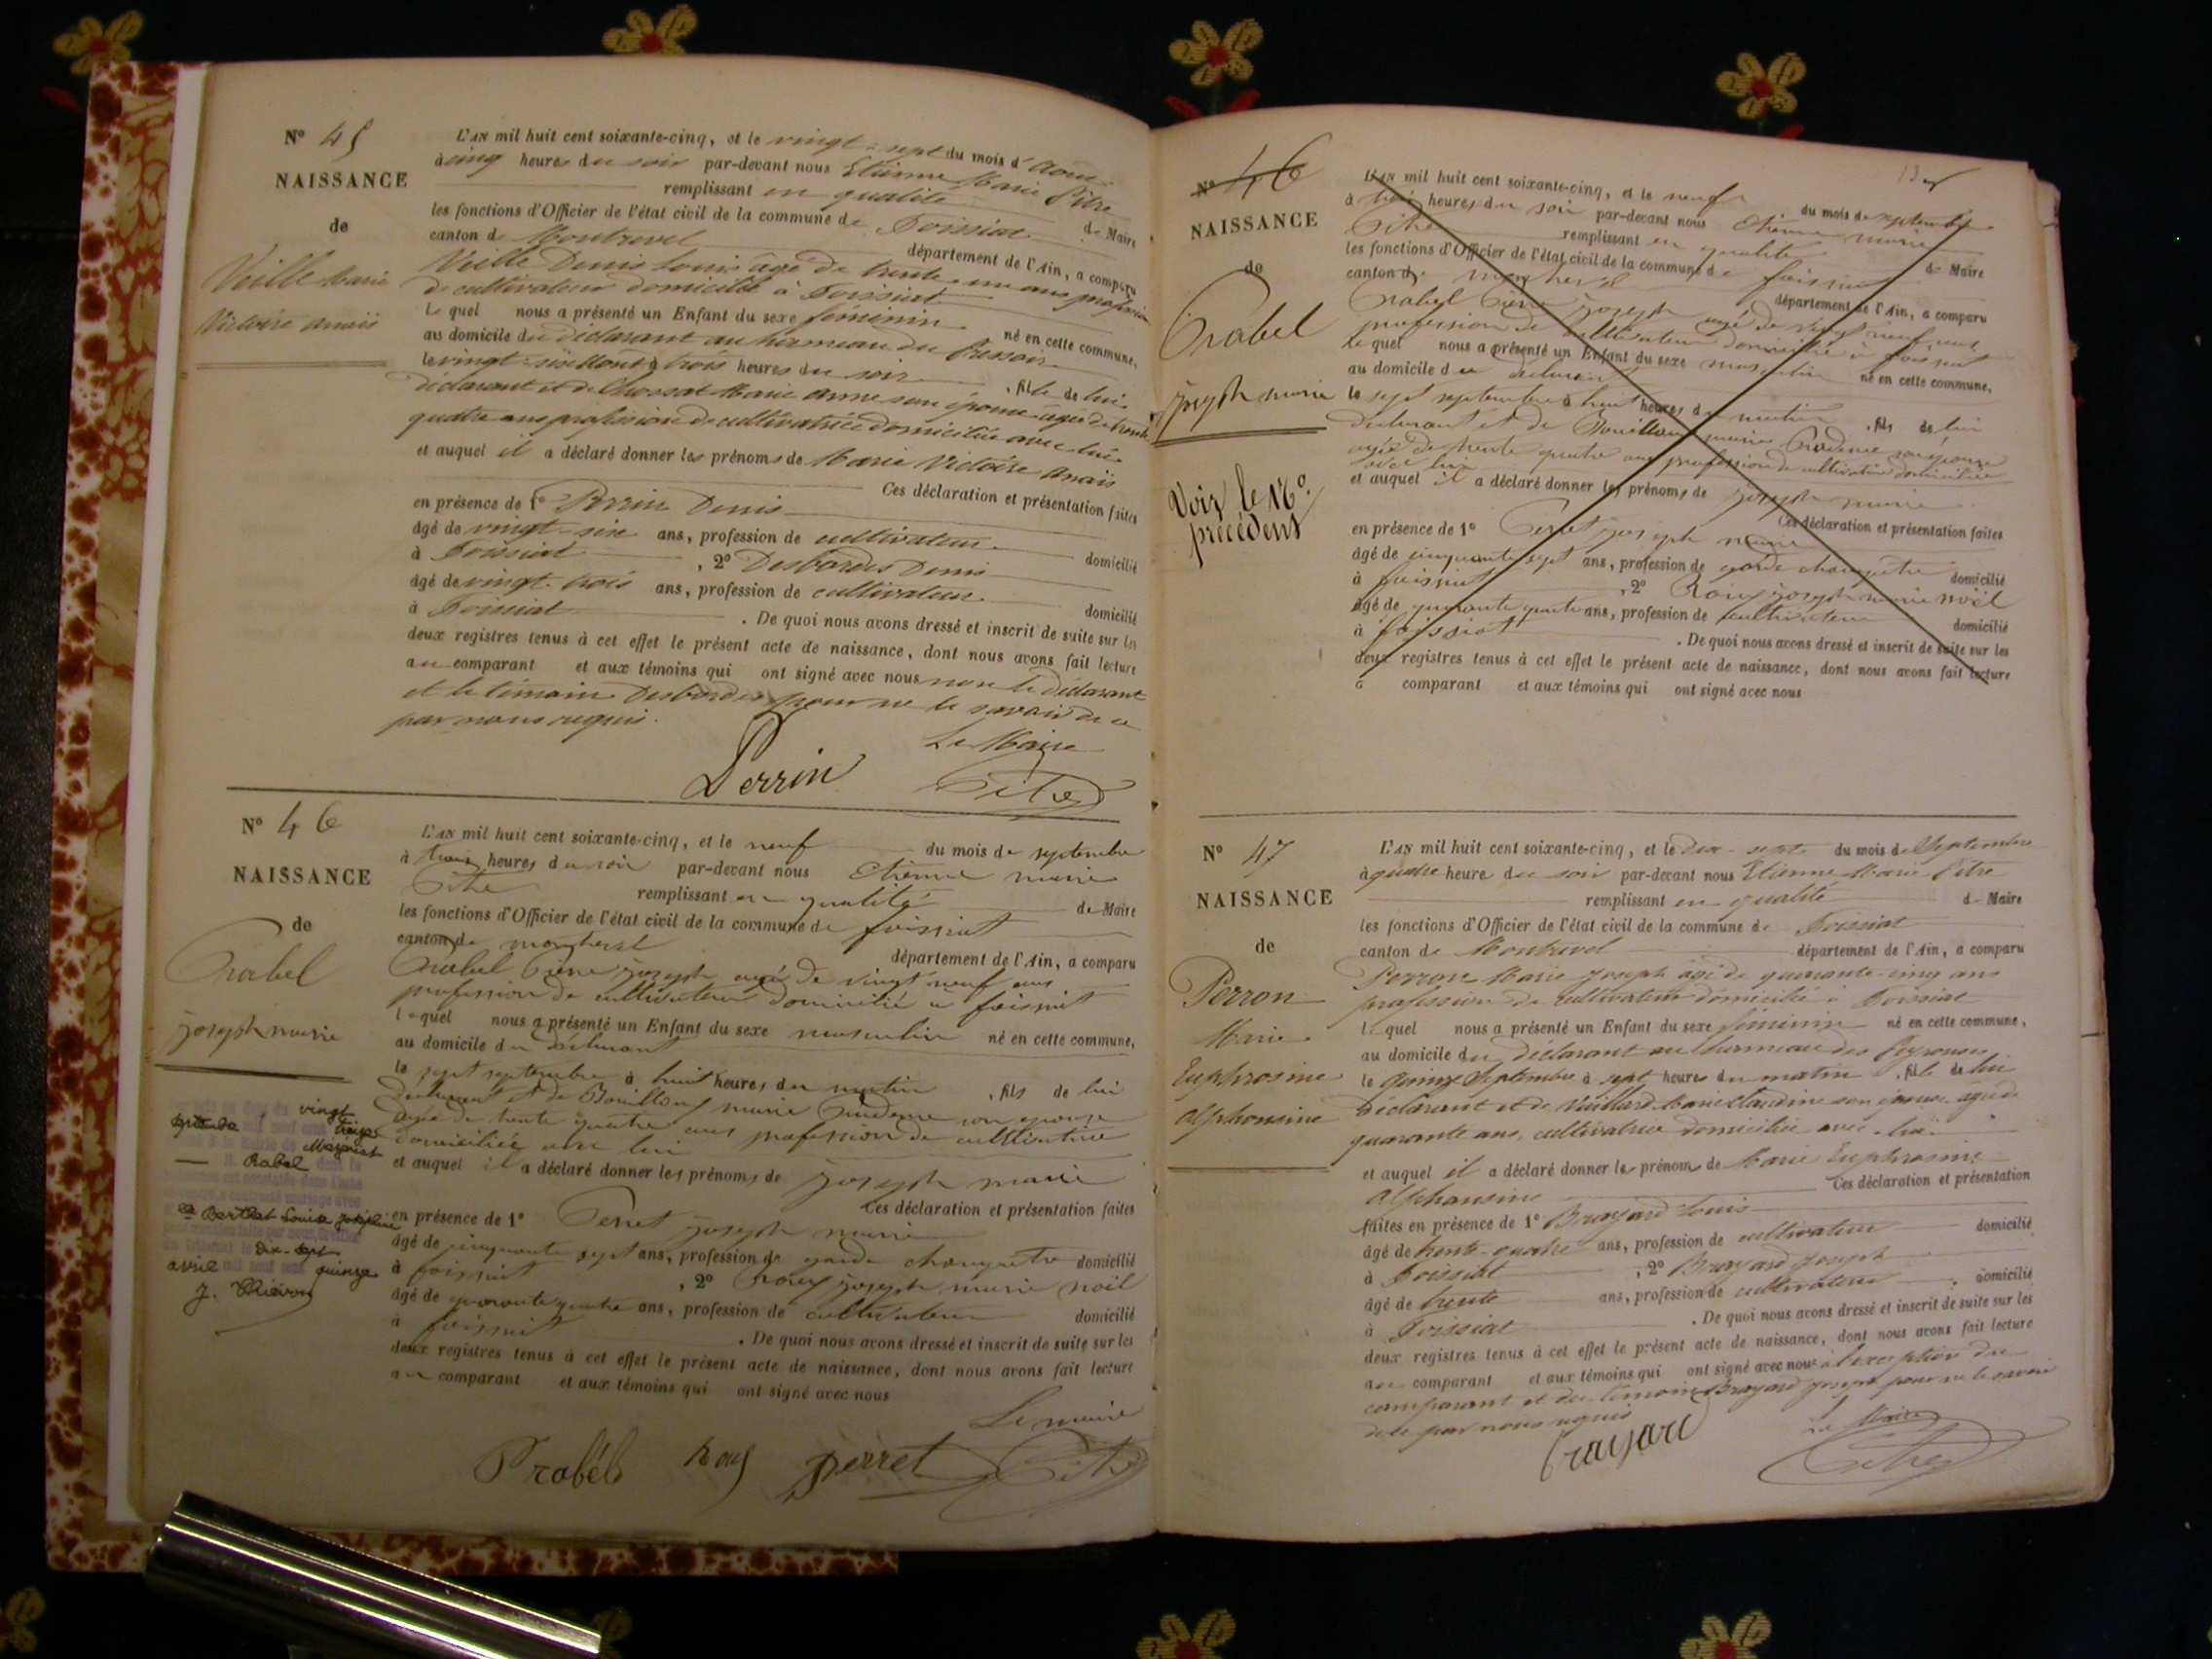 N° 45
NAISSANCE
de
Veille Marie
Victoire Anaïs
L'AN mil huit cent soixante-cinq, et le vingt-sept du mois d'Août
à cinq heures du soir par-devant nous Etienne Marie Pitre
remplissant en qualité de Maire
les fonctions d'Officier de l'état civil de la commune de Foissiat
canton de Montrevel département de l'Ain, a comparu
Veille Denis Louis âgé de trente un ans profession
de cultivateur domicilié à Foissiat
Lequel nous a présenté un Enfant du sexe féminin né en cette commune,
au domicile du déclarant au hameau du Pressoir
le vingt-six Août à trois heures du soir, fille de lui
déclarant et de Chossat Marie Anne son épouse âgée de trente
quatre ans profession de cultivatrice domiciliée avec lui
et auquel il a déclaré donner les prénoms de Marie Victoire Anaïs
Ces déclaration et présentation faites
en présence de 1° Perrin Denis
âgé de vingt-six ans, profession de cultivateur domicilié
à Foissiat, 2° Desbordes Denis
âgé de vingt-trois ans, profession de cultivateur domicilié
à Foissiat. De quoi nous avons dressé et inscrit de suite sur les
deux registres tenus à cet effet le présent acte de naissance, dont nous avons fait lecture
au comparant et aux témoins qui ont signé avec nous non le déclarant
et le témoin Desbordes pour ne le savoir de ce
par nous requis.
Le Maire
Perrin Pitre
N° 46
NAISSANCE
de
Rabel
joseph marie
L'AN mil huit cent soixante-cinq, et le neuf du mois de septembre
à trois heures du soir par-devant nous etienne marie
Pitre remplissant en qualité de Maire
les fonctions d'Officier de l'état civil de la commune de foissiat
canton de montrevel département de l'Ain, a comparu
Rabel Pierre joseph agé de vingt neuf ans
profession de cultivateur domicilié a foissiat
lequel nous a présenté un Enfant du sexe masculin né en cette commune,
au domicile du déclarant
le sept septembre à huit heures du matin, fils de lui
déclarant et de Bouilloux marie Prudence son épouse
agée de trente quatre ans profession de cultivatrice
domiciliée avec lui
et auquel il a déclaré donner les prénoms de joseph marie
Ces déclaration et présentation faites
en présence de 1° Perret joseph marie
âgé de cinquante sept ans, profession de garde champetre domicilié
à foissiat, 2° Roux joseph marie noël
âgé de quarante quatre ans, profession de cultivateur domicilié
à foissiat. De quoi nous avons dressé et inscrit de suite sur les
deux registres tenus à cet effet le présent acte de naissance, dont nous avons fait lecture
au comparant et aux témoins qui ont signé avec nous
Le maire
Rabel Roux Perret Pitre
vingt
trois
Rabel
Berthet Louise Joséphine
dix-sept
avril quinze
N° 46
NAISSANCE
de
Rabel
joseph marie
Voir le N°
précédent
L'AN mil huit cent soixante-cinq, et le neuf du mois de septembre
à trois heures du soir par-devant nous etienne marie
Pitre remplissant en qualité de Maire
les fonctions d'Officier de l'état civil de la commune de foissiat
canton de montrevel département de l'Ain, a comparu
Rabel Pierre joseph agé de vingt neuf ans
profession de cultivateur domicilié a foissiat
Lequel nous a présenté un Enfant du sexe masculin né en cette commune,
au domicile du déclarant
le sept septembre à huit heures du matin, fils de lui
déclarant et de Bouilloux marie Prudence son épouse
agée de trente quatre ans profession de cultivatrice domiciliée
avec lui
et auquel il a déclaré donner les prénoms de joseph marie
Ces déclaration et présentation faites
en présence de 1° Perret joseph marie
âgé de cinquante sept ans, profession de garde champetre domicilié
à foissiat, 2° Roux joseph marie noël
âgé de quarante quatre ans, profession de cultivateur domicilié
à foissiat. De quoi nous avons dressé et inscrit de suite sur les
deux registres tenus à cet effet le présent acte de naissance, dont nous avons fait lecture
a comparant et aux témoins qui ont signé avec nous
N° 47
NAISSANCE
de
Perron
Marie
Euphrosine
Alphonsine
L'AN mil huit cent soixante-cinq, et le dix-sept du mois de Septembre
à quatre heure du soir par-devant nous Etienne Marie Pitre
remplissant en qualité de Maire
les fonctions d'Officier de l'état civil de la commune de Foissiat
canton de Montrevel département de l'Ain, a comparu
Perron Marie Joseph âgé de quarante-cinq ans
profession de cultivateur domicilié à Foissiat
Lequel nous a présenté un Enfant du sexe féminin né en cette commune,
au domicile du déclarant au hameau des
le quinze Septembre à sept heures du matin, fille de lui
déclarant et de Vuillard Marie Claudine son épouse âgée de
quarante ans, cultivatrice domiciliée avec lui
et auquel il a déclaré donner les prénoms de Marie Euphrosine
Alphonsine Ces déclaration et présentation
faites en présence de 1° Brayard Louis
âgé de trente-quatre ans, profession de cultivateur domicilié
à Foissiat, 2° Brayard Joseph
âgé de trente ans, profession de cultivateur domicilié
à Foissiat. De quoi nous avons dressé et inscrit de suite sur les
deux registres tenus à cet effet le présent acte de naissance, dont nous avons fait lecture
au comparant et aux témoins qui ont signé avec nous à l'exception du
comparant et du témoin Brayard Joseph pour ne le savoir
de ce par nous requis
Le Maire
Brayard Pitre